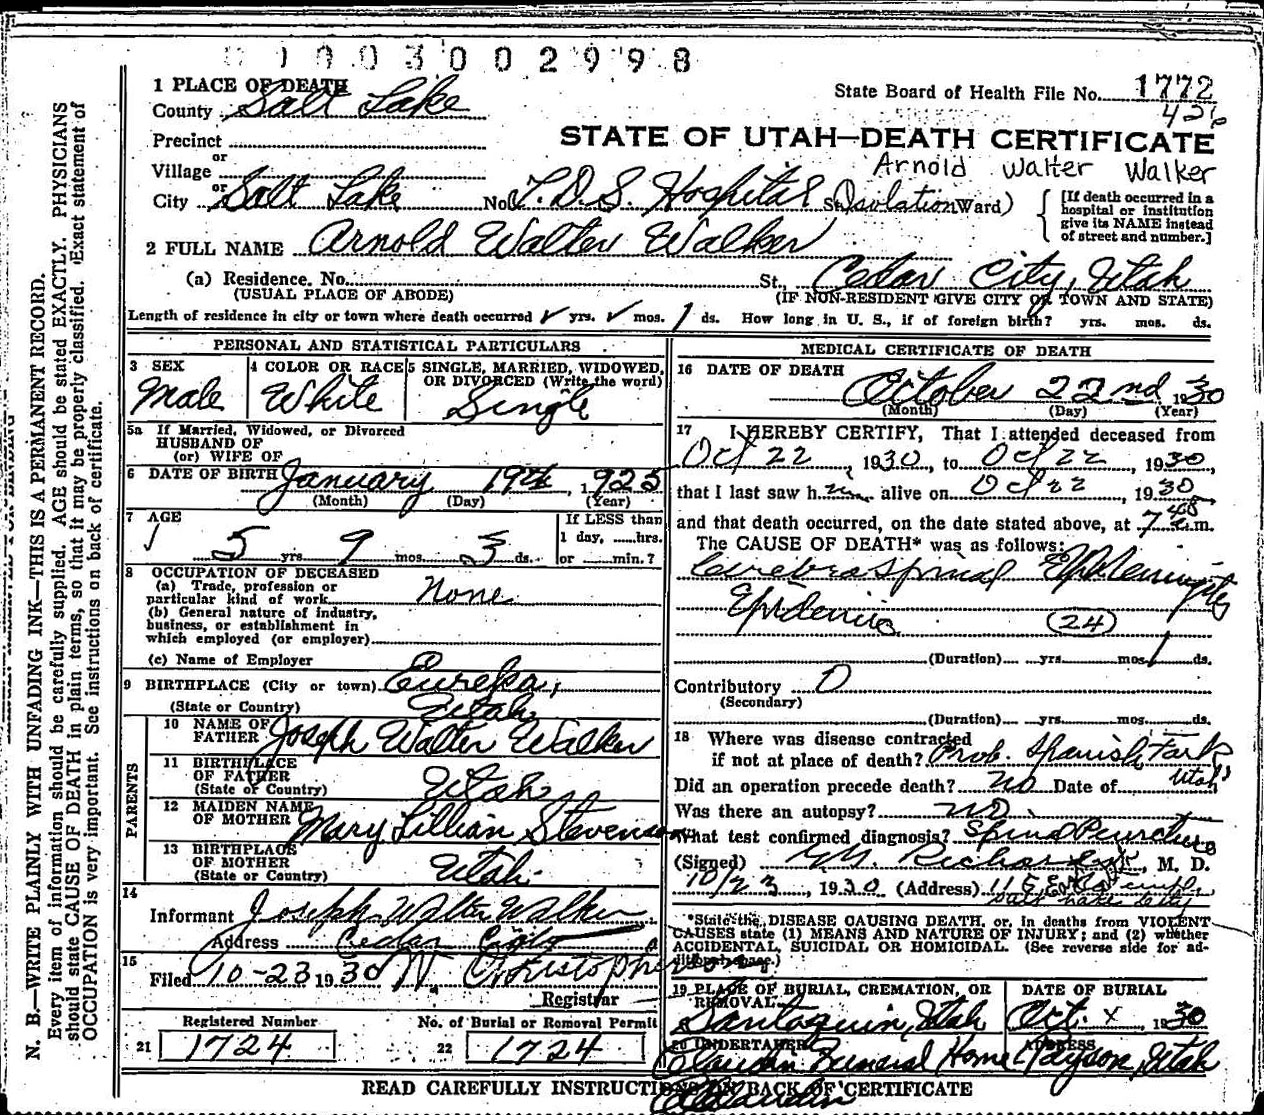 0 1 0 0 3 0 0 2 9 9 8
1 PLACE OF DEATH
County Salt Lake
State Board of Health File No. 1772
426
Precinct
STATE OF UTAH—DEATH CERTIFICATE
or
Village
Arnold Walter Walker
or
City Salt Lake No. L.D.S. Hospital St. Isolation Ward)
[If death occurred in a hospital or institution give its NAME instead of street and number.]
2 FULL NAME Arnold Walter Walker
(a) Residence. No. St., Cedar City, Utah
(USUAL PLACE OF ABODE) (IF NON-RESIDENT GIVE CITY OR TOWN AND STATE)
Length of residence in city or town where death occurred yrs. mos. 1 ds. How long in U. S., if of foreign birth? yrs. mos. ds.
PERSONAL AND STATISTICAL PARTICULARS
3 SEX
Male
4 COLOR OR RACE
White
5 SINGLE, MARRIED, WIDOWED, OR DIVORCED (Write the word)
Single
5a If Married, Widowed, or Divorced
HUSBAND OF
(or) WIFE OF
6 DATE OF BIRTH January 19th 1925
(Month) (Day) (Year)
7 AGE
5 yrs. 9 mos. 3 ds.
If LESS than
1 day, ......hrs.
or ......min.?
8 OCCUPATION OF DECEASED
(a) Trade, profession or
particular kind of work None
(b) General nature of industry,
business, or establishment in
which employed (or employer)
(c) Name of Employer
9 BIRTHPLACE (City or town) Eureka,
(State or Country) Utah
PARENTS
10 NAME OF FATHER Joseph Walter Walker
11 BIRTHPLACE OF FATHER (State or Country) Utah
12 MAIDEN NAME OF MOTHER Mary Lillian Stevenson
13 BIRTHPLACE OF MOTHER (State or Country) Utah
14
Informant Joseph Walter Walker
Address Cedar City
15
Filed 10-23 1930 Christopherson
Registrar
Registered Number
21 1724
No. of Burial or Removal Permit
22 1724
MEDICAL CERTIFICATE OF DEATH
16 DATE OF DEATH
October 22nd 1930
(Month) (Day) (Year)
17 I HEREBY CERTIFY, That I attended deceased from
Oct 22, 1930, to Oct 22, 1930,
that I last saw him alive on Oct 22, 1930
and that death occurred, on the date stated above, at 7 40 m.
The CAUSE OF DEATH* was as follows:
Cerebrospinal Meningitis
Epidemic (24)
(Duration) yrs. mos. 1 ds.
Contributory 0
(Secondary)
(Duration) yrs. mos. ds.
18 Where was disease contracted
if not at place of death? Prob. Spanish Fork
Utah
Did an operation precede death? no Date of
Was there an autopsy? no
What test confirmed diagnosis? Spinal Puncture
(Signed) Richards, M. D.
10/23, 1930 (Address) 115 E
Salt Lake City
*State the DISEASE CAUSING DEATH, or, in deaths from VIOLENT
CAUSES state (1) MEANS AND NATURE OF INJURY; and (2) whether
ACCIDENTAL, SUICIDAL OR HOMICIDAL. (See reverse side for additional space.)
19 PLACE OF BURIAL, CREMATION, OR REMOVAL
Santaquin, Utah
DATE OF BURIAL
Oct. x, 1930
20 UNDERTAKER
Claudin Funeral Home
ADDRESS
Payson, Utah
READ CAREFULLY INSTRUCTIONS ON BACK OF CERTIFICATE
N. B.—WRITE PLAINLY WITH UNFADING INK—THIS IS A PERMANENT RECORD.
Every item of information should be carefully supplied. AGE should be stated EXACTLY. PHYSICIANS
should state CAUSE OF DEATH in plain terms, so that it may be properly classified. Exact statement of
OCCUPATION is very important. See instructions on back of certificate.